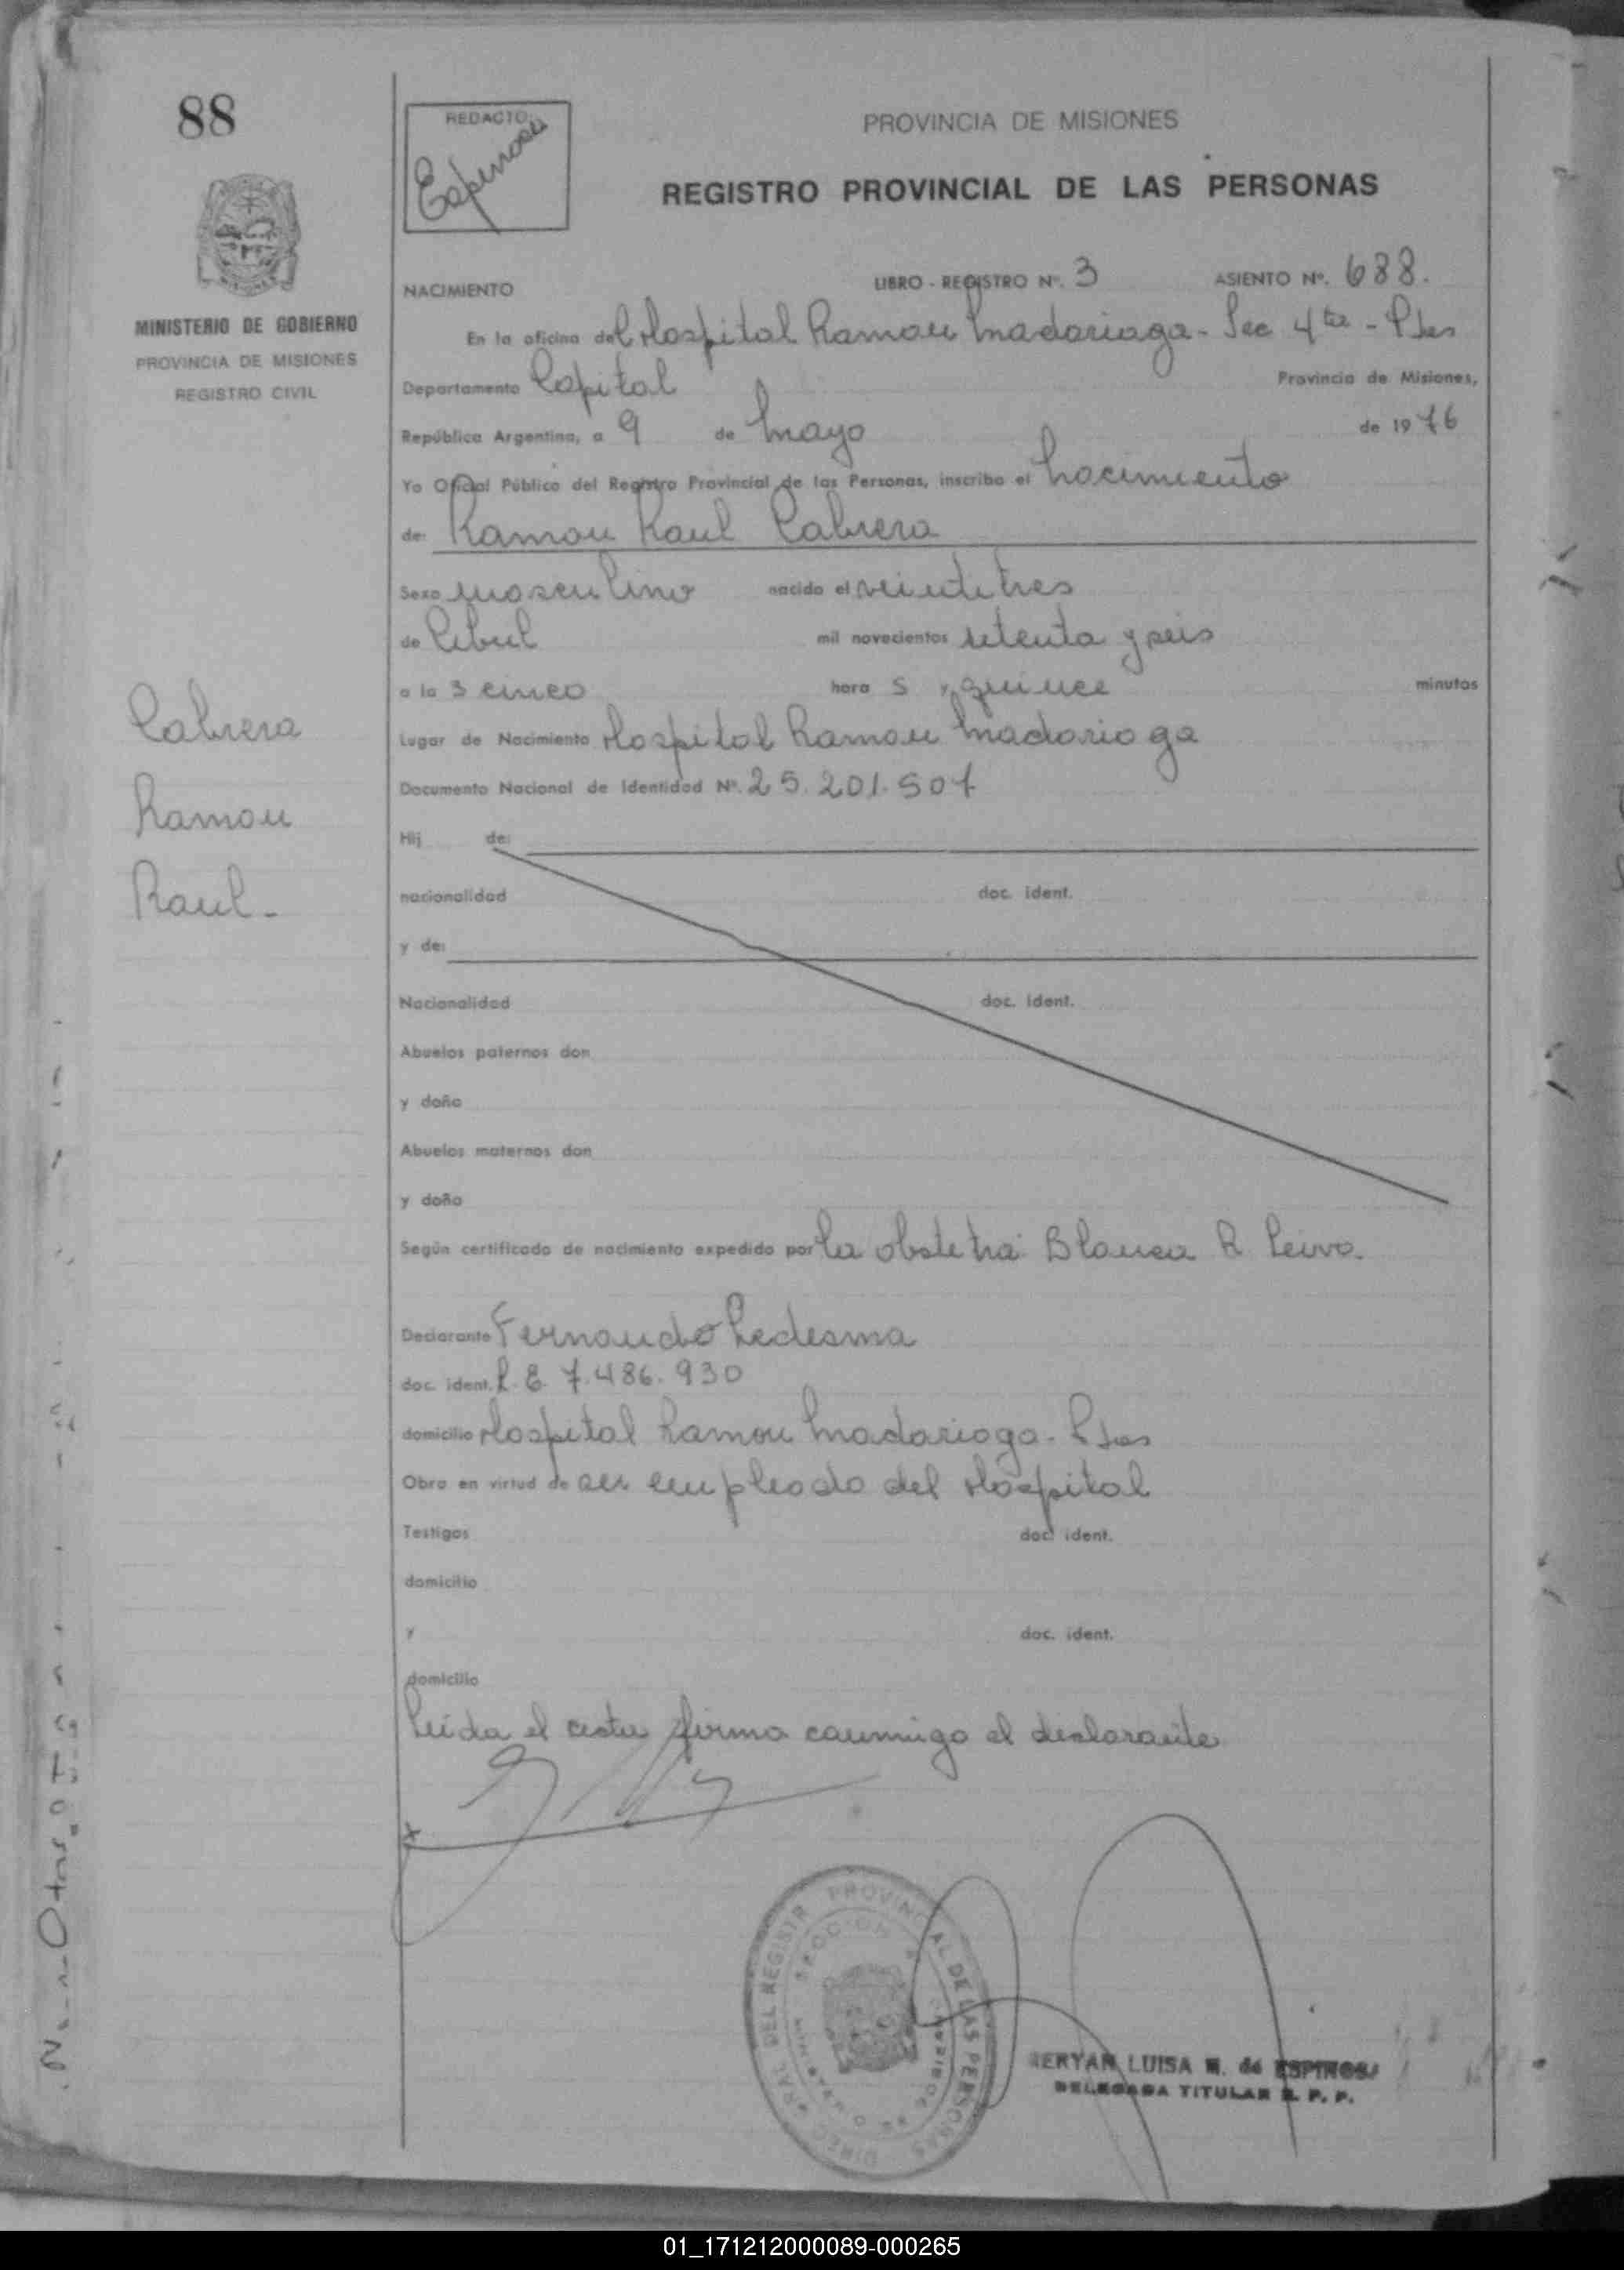 88
REDACTO
Espinosa
PROVINCIA DE MISIONES
REGISTRO PROVINCIAL DE LAS PERSONAS
MINISTERIO DE GOBIERNO
PROVINCIA DE MISIONES
REGISTRO CIVIL
NACIMIENTO LIBRO - REGISTRO Nº. 3 ASIENTO Nº. 688.
En la oficina del Hospital Ramon Madariaga - Sec 4ta - Pdas
Departamento Capital Provincia de Misiones,
República Argentina, a 9 de Mayo de 1976
Yo Oficial Público del Registro Provincial de las Personas, inscribo el Nacimiento
de: Ramon Raul Cabrera
Sexo masculino nacido el veintitres
de Abril mil novecientos setenta y seis
a la s cinco hora s y quince minutos
Lugar de Nacimiento Hospital Ramon Madariaga
Documento Nacional de Identidad Nº. 25.201.507
Cabrera
Ramon
Raul-
Hij de:
nacionalidad doc. ident.
y de:
Nacionalidad doc. ident.
Abuelos paternos don
y doña
Abuelos maternos don
y doña
Según certificado de nacimiento expedido por la obstetra Blanca R Leiva.
Declarante Fernando Ledesma
doc. ident. L.E. 7.486.930
domicilio Hospital Ramon Madariaga - Pdas
Obra en virtud de ser empleado del Hospital
Testigos doc. ident.
domicilio
y doc. ident.
domicilio
Leida el acta firma conmigo el declarante
DIREC RAL DEL REGISTR PROVINCIAL DE LAS PERSONAS
SECCION
LUISA M. de ESPINOSA
DELEGADA TITULAR R. P. P.
01_171212000089-000265